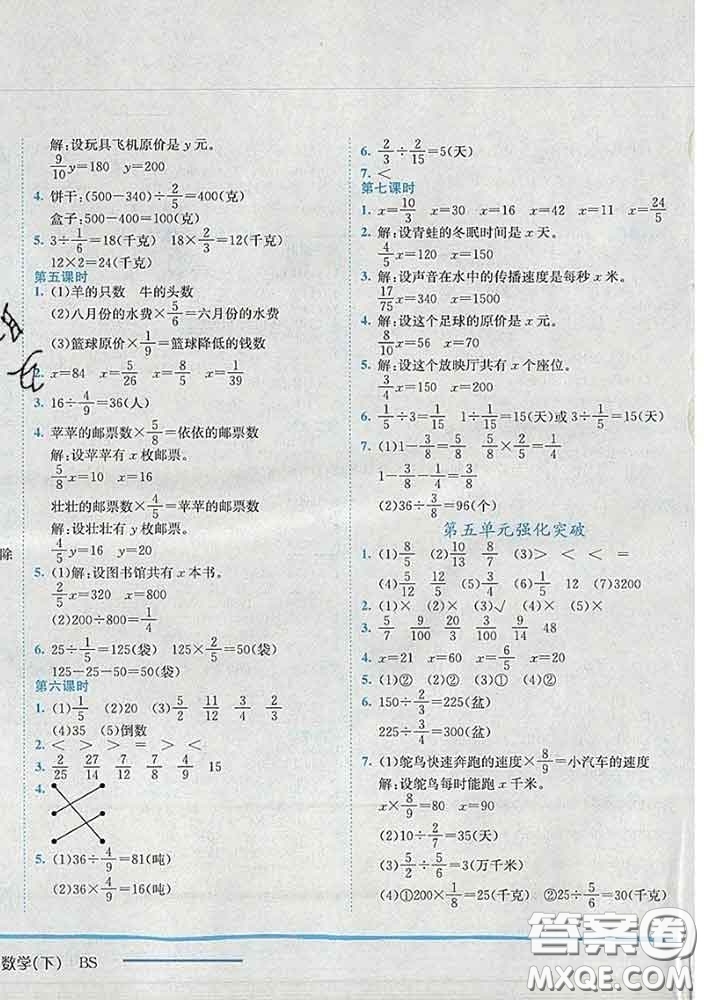 解：设玩具飞机原价是y元。
9/10 y=180　y=200
4. 饼干：(500-340)÷2/5=400(克)
盒子：500-400=100(克)
5. 3÷1/6=18(千克)　18×2/3=12(千克)
12×2=24(千克)
第五课时
1. (1)羊的只数　牛的头数
(2)八月份的水费×5/6=六月份的水费
(3)篮球原价×1/9=篮球降低的钱数
2. x=84　x=5/26　x=8/5　x=1/39
3. 16÷4/9=36(人)
4. 苹苹的邮票数×5/8=依依的邮票数
解：设苹苹有x枚邮票。
5/8 x=10　x=16
壮壮的邮票数×4/5=苹苹的邮票数
解：设壮壮有y枚邮票。
4/5 y=16　y=20
除
5. (1)解：设图书馆共有x本书。
2/5 x=320　x=800
(2)200÷800=1/4
6. 25÷1/5=125(袋)　125×2/5=50(袋)
125-25-50=50(袋)
第六课时
1. (1)1/5　(2)20　(3)5/2　11/12　3/4　2/3
(4)35　(5)倒数
2. <　>　>　=　>　<
3. 2/25　27/14　7/12　7/2　4/9　15
4.
5. (1)36÷4/9=81(吨)
(2)36×4/9=16(吨)
数学(下)　BS
6. 2/3÷2/15=5(天)
7. <
第七课时
1. x=10/3　x=30　x=16　x=42　x=11　x=24/5
2. 解：设青蛙的冬眠时间是x天。
4/5 x=120　x=150
3. 解：设声音在水中的传播速度是每秒x米。
17/75 x=340　x=1500
4. 解：设这个足球的原价是x元。
8/10 x=56　x=70
5. 解：设这个放映厅共有x个座位。
3/4 x=150　x=200
6. 1/5÷3=1/15　1÷1/15=15(天)或3÷1/5=15(天)
7. (1)1-3/8=5/8　5/8×2/5=1/4
1-1/4-3/8=3/8
(2)36÷3/8=96(个)
第五单元强化突破
1. (1)8/5　(2)10/13　8/7　(3)>　<　<　=
(4)5/12　12/5　(5)3/4　(6)1/5　12　(7)3200
2. (1)×　(2)×　(3)√　(4)×　(5)×
3. 5/7　9/100　20/3　3/100　9/14　48
4. x=21　x=60　x=6/5
5. (1)②　(2)①　(3)②　(4)②
6. 150÷2/3=225(盆)
225÷3/4=300(盆)
7. (1)鸵鸟快速奔跑的速度×8/9=小汽车的速度
解：设鸵鸟每时能跑x千米。
x×8/9=80　x=90
(2)10÷2/7=35(天)
(3)5/2÷5/6=3(万千米)
(4)①200×1/8=25(千克)　②25÷5/6=30(千克)
答案卷
MXQE.COM